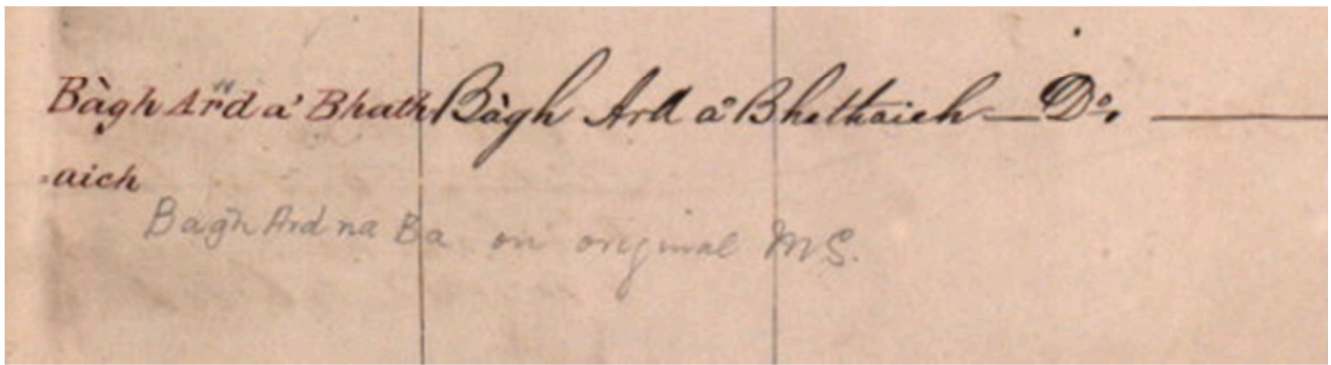 Bàgh Ard a' Bhath Bàgh Ard a' Bhethaich — Do. —
-aich
Bagh Ard na Ba on original MS.